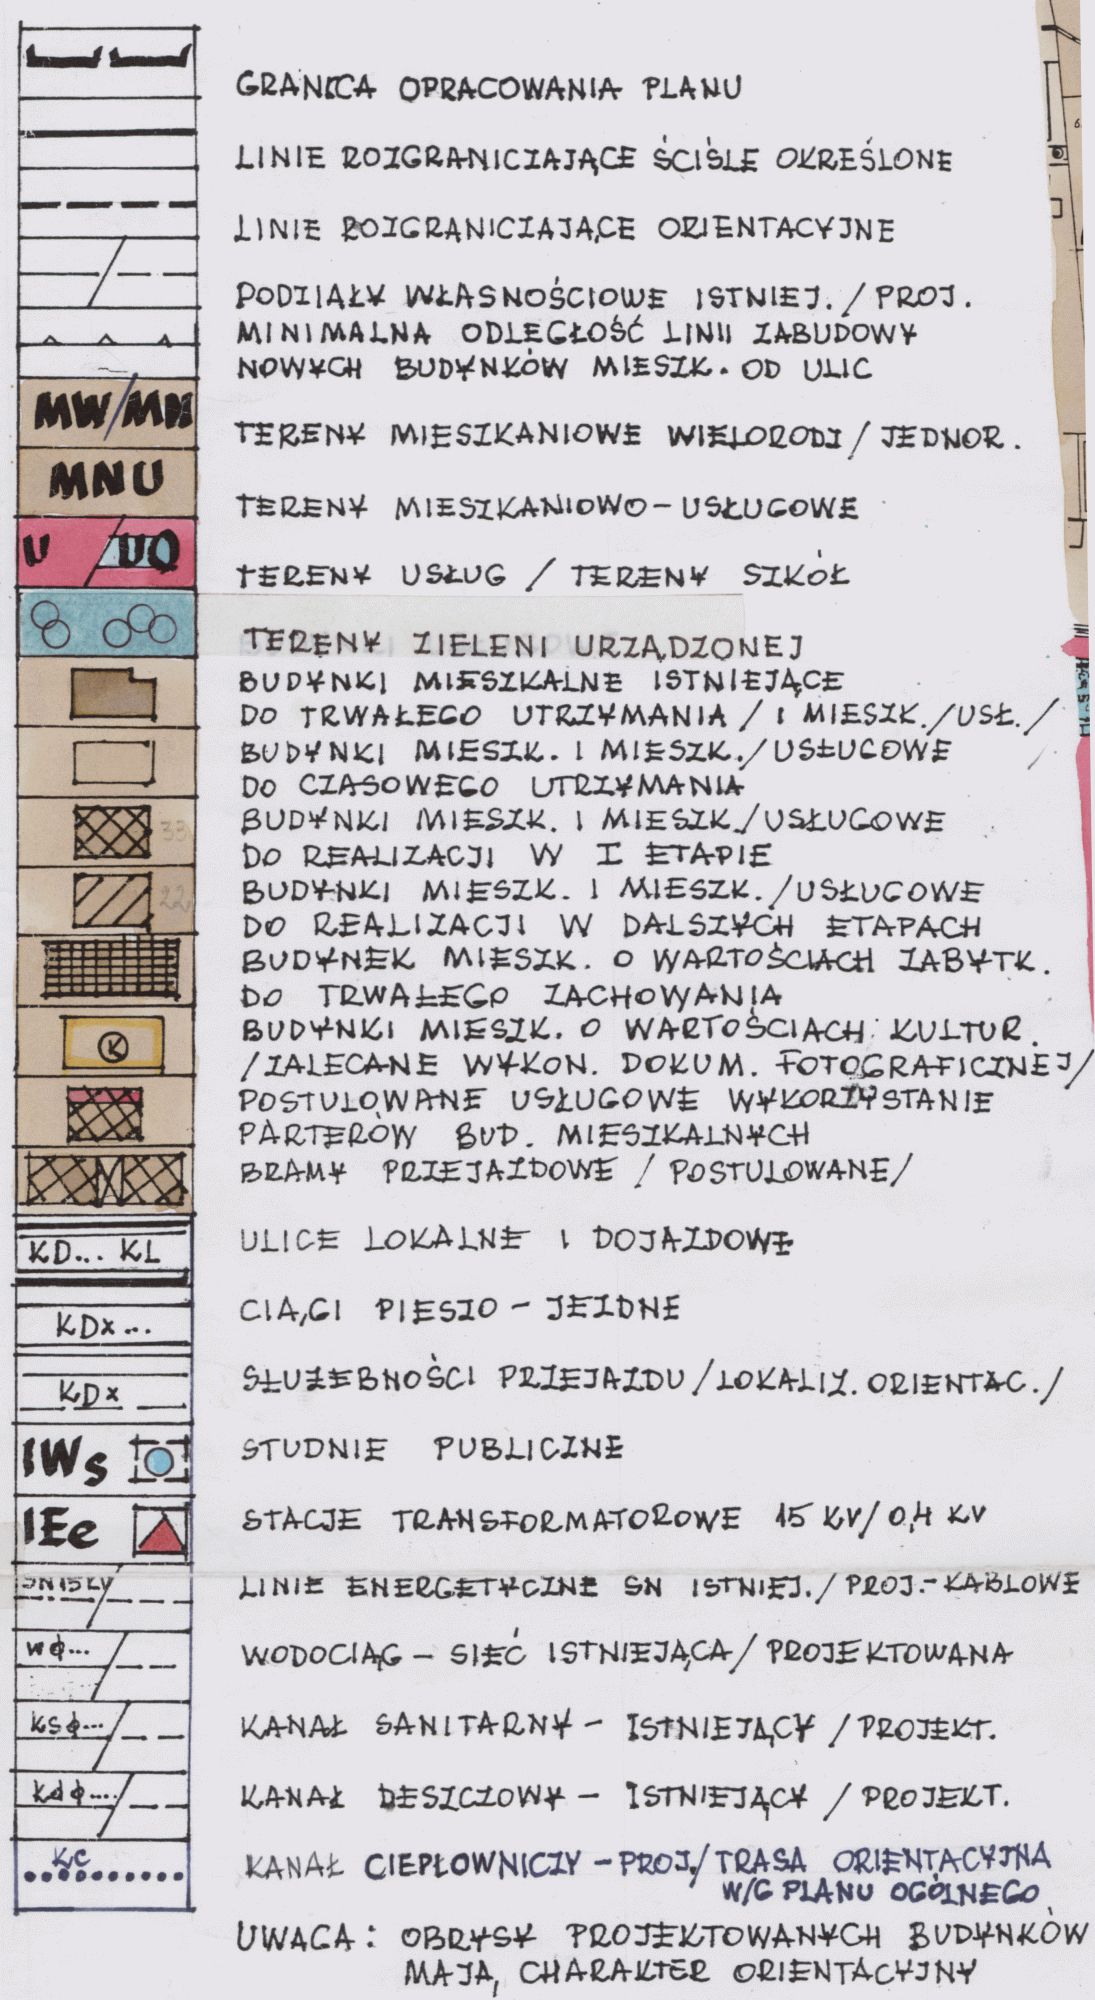 GRANICA OPRACOWANIA PLANU
LINIE ROZGRANICZAJĄCE ŚCIŚLE OKREŚLONE
LINIE ROZGRANICZAJĄCE ORIENTACYJNE
PODZIAŁY WŁASNOŚCIOWE ISTNIEJ. / PROJ.
MINIMALNA ODLEGŁOŚĆ LINII ZABUDOWY
NOWYCH BUDYNKÓW MIESZK. OD ULIC
MW/MN TERENY MIESZKANIOWE WIELORODZ / JEDNOR.
MNU TERENY MIESZKANIOWO - USŁUGOWE
U / UO TERENY USŁUG / TERENY SZKÓŁ
TERENY ZIELENI URZĄDZONEJ
BUDYNKI MIESZKALNE ISTNIEJĄCE
DO TRWAŁEGO UTRZYMANIA / I MIESZK./USŁ./
BUDYNKI MIESZK. I MIESZK./USŁUGOWE
DO CZASOWEGO UTRZYMANIA
BUDYNKI MIESZK. I MIESZK./USŁUGOWE
33 DO REALIZACJI W I ETAPIE
BUDYNKI MIESZK. I MIESZK./USŁUGOWE
22 DO REALIZACJI W DALSZYCH ETAPACH
BUDYNEK MIESZK. O WARTOŚCIACH ZABYTK.
DO TRWAŁEGO ZACHOWANIA
BUDYNKI MIESZK. O WARTOŚCIACH KULTUR.
K /ZALECANE WYKON. DOKUM. FOTOGRAFICZNEJ/
POSTULOWANE USŁUGOWE WYKORZYSTANIE
PARTERÓW BUD. MIESZKALNYCH
BRAMY PRZEJAZDOWE / POSTULOWANE/
KD... KL ULICE LOKALNE I DOJAZDOWE
KDx... CIĄGI PIESZO - JEZDNE
KDx SŁUŻEBNOŚCI PRZEJAZDU /LOKALIZ. ORIENTAC./
IWs STUDNIE PUBLICZNE
IEe STACJE TRANSFORMATOROWE 15 KV/ 0,4 KV
SN15KV LINIE ENERGETYCZNE SN ISTNIEJ./ PROJ.- KABLOWE
wϕ... WODOCIĄG - SIEĆ ISTNIEJĄCA/ PROJEKTOWANA
ksϕ... KANAŁ SANITARNY - ISTNIEJĄCY / PROJEKT.
kdϕ.... KANAŁ DESZCZOWY - ISTNIEJĄCY / PROJEKT.
KC KANAŁ CIEPŁOWNICZY - PROJ./ TRASA ORIENTACYJNA
W/G PLANU OGÓLNEGO
UWAGA : OBRYSY PROJEKTOWANYCH BUDYNKÓW
MAJĄ CHARAKTER ORIENTACYJNY